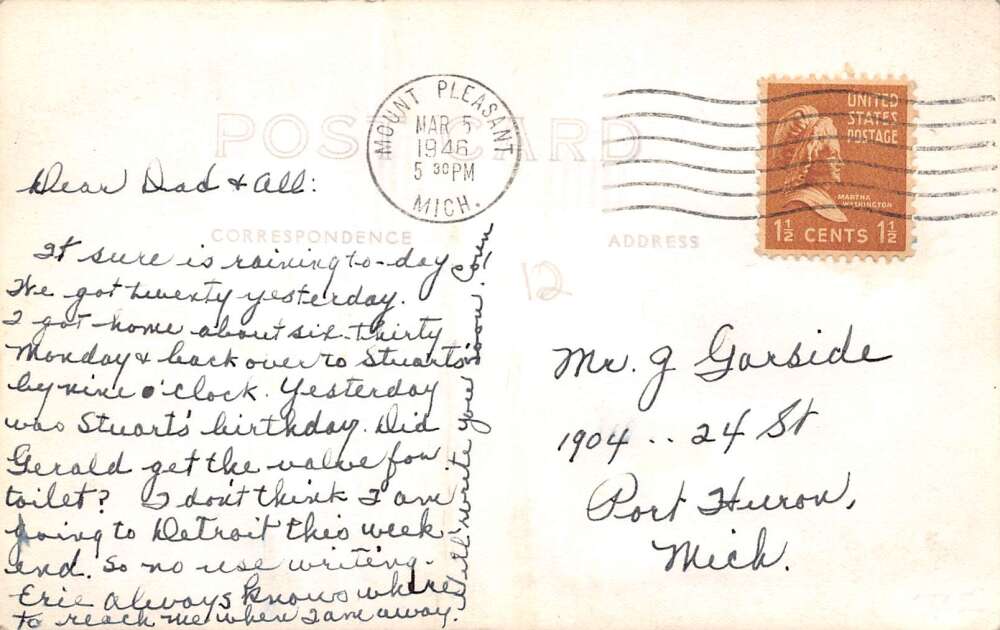 POST CARD
MOUNT PLEASANT
MAR 5
1946
5 30 PM
MICH.
UNITED
STATES
POSTAGE
MARTHA
WASHINGTON
1½ CENTS 1½
CORRESPONDENCE
ADDRESS
12
Dear Dad & All:
It sure is raining to-day
We got twenty yesterday.
I got home about six-thirty
Monday & back over to Stuart's
by nine o'clock. Yesterday
was Stuart's birthday. Did
Gerald get the valve for
toilet? I don't think I am
going to Detroit this week
end. So no use writing.
Eric always knows where
to reach me when I am away.
I'll write you soon.
Mr. G Garside
1904 .. 24 St
Port Huron,
Mich.